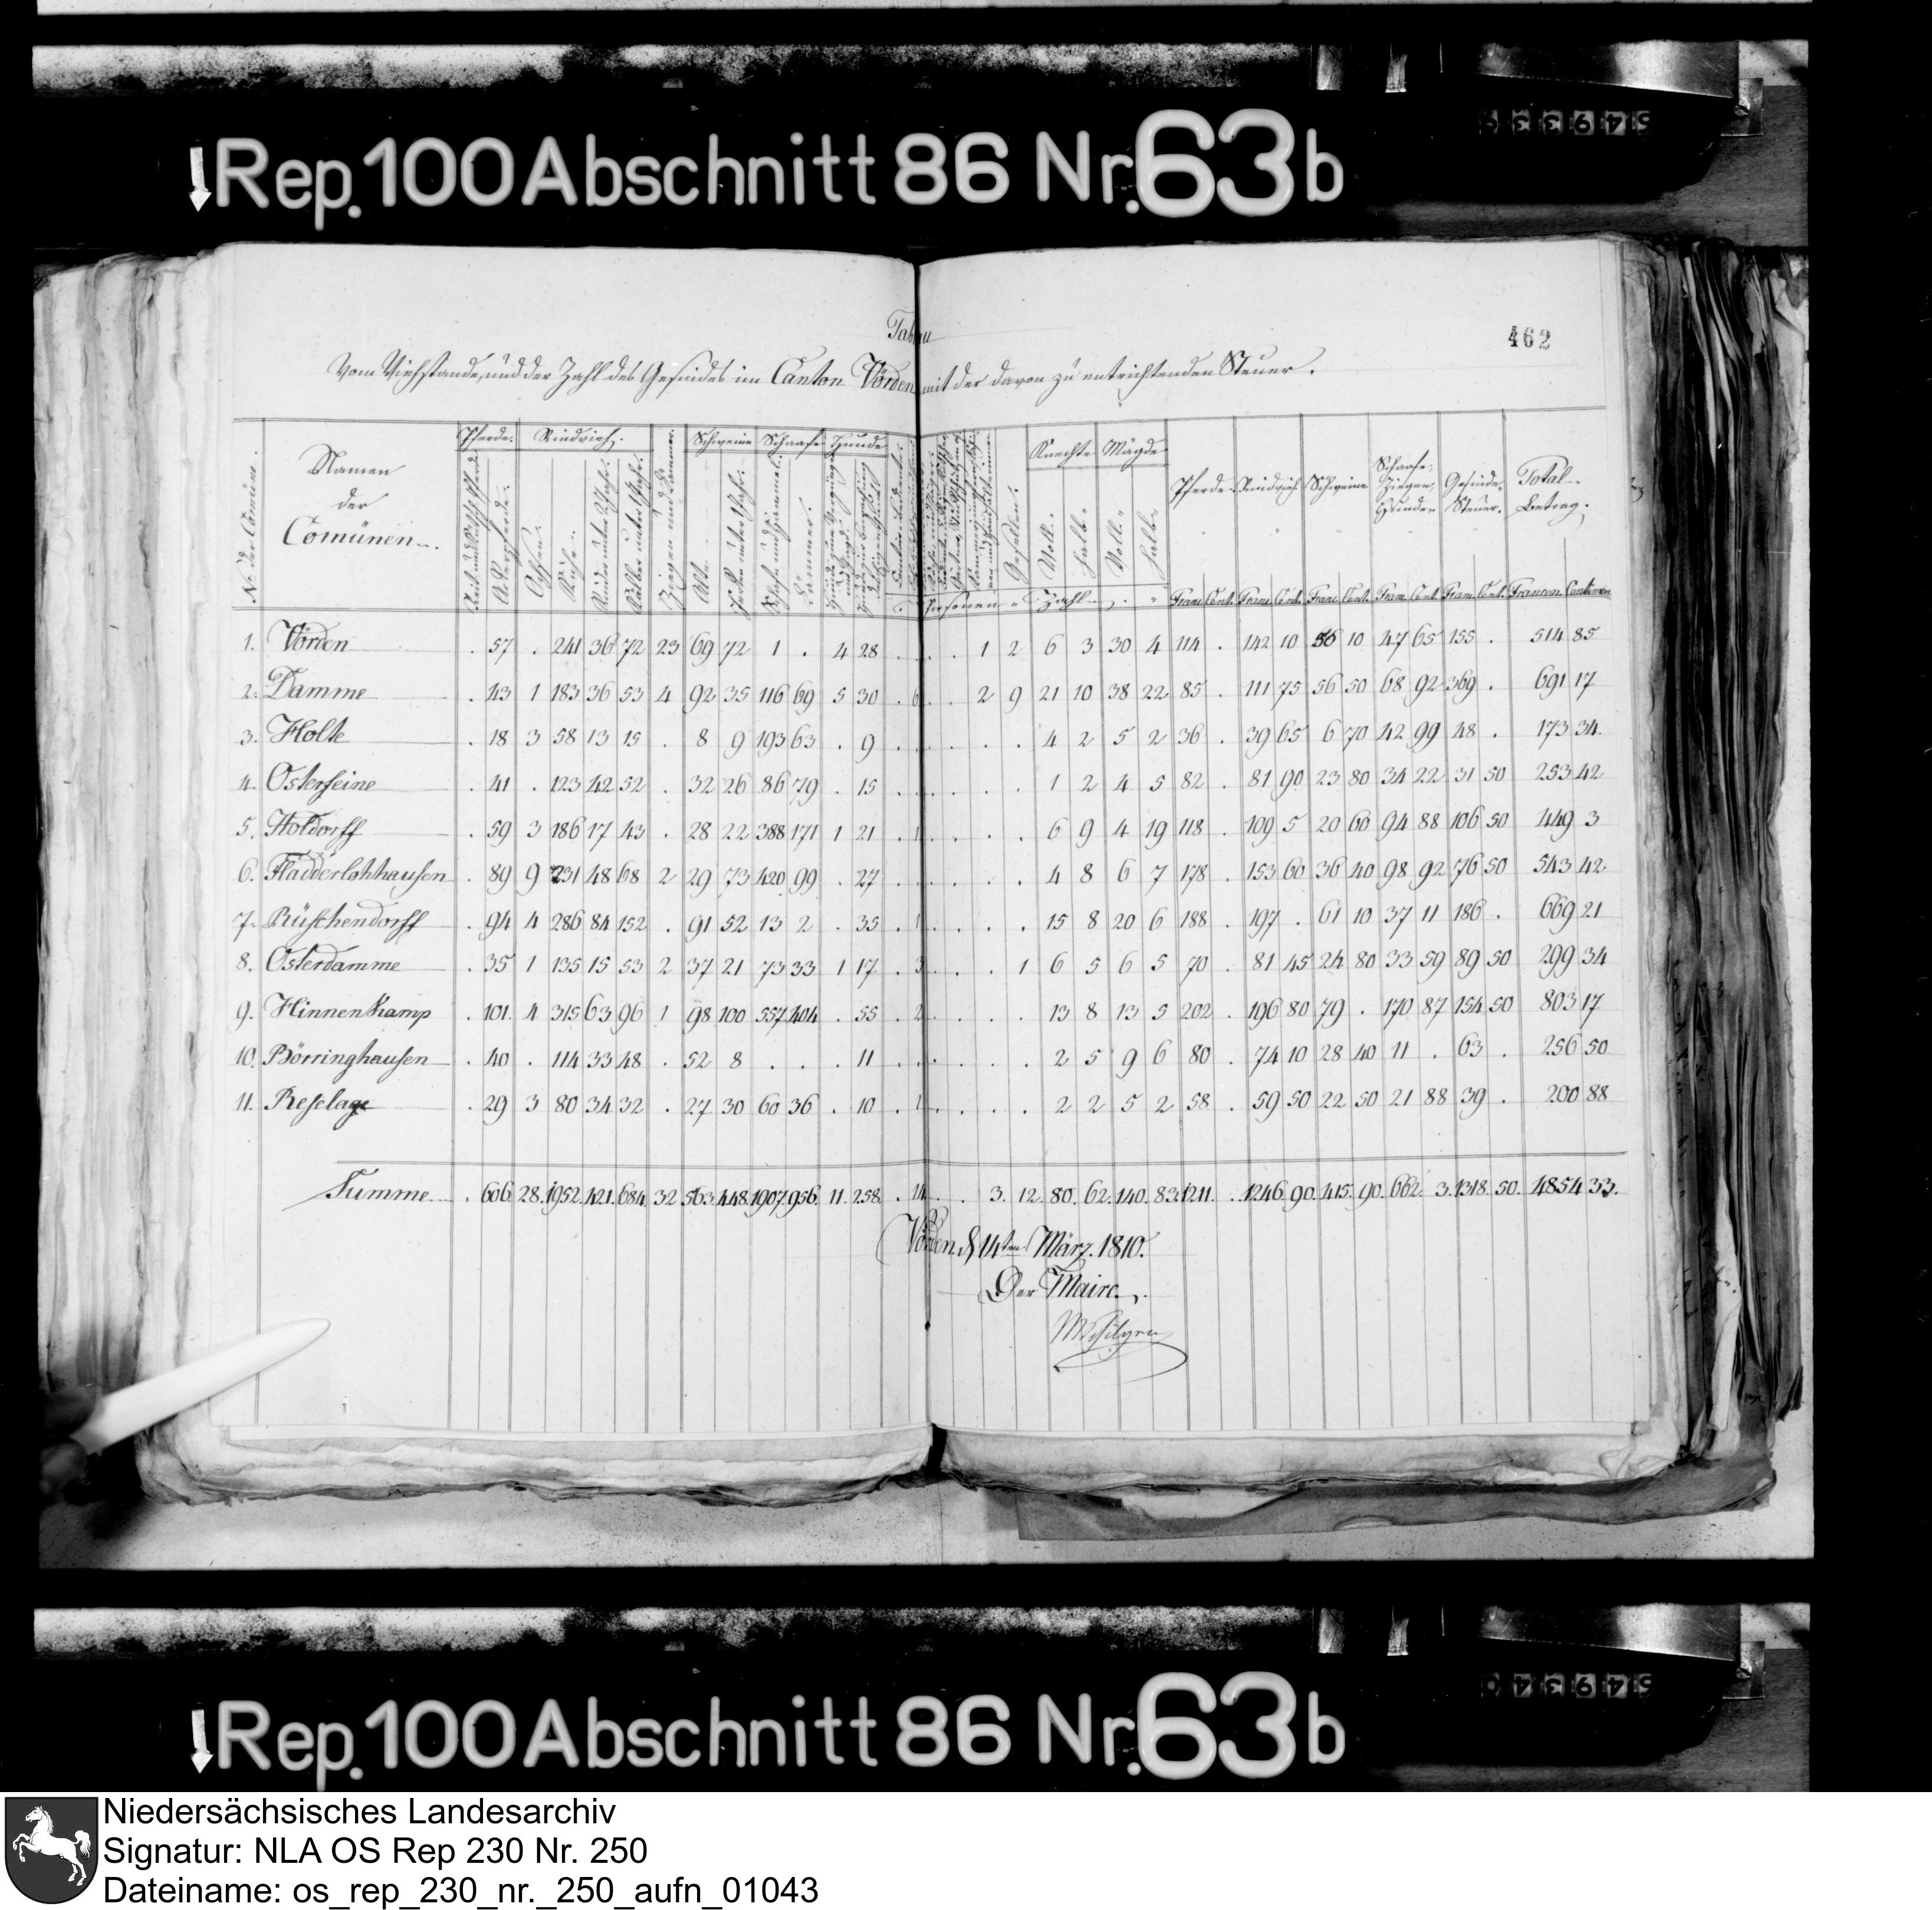 Rep. 100 Abschnitt 86 Nr. 63 b
462
Tableau
Vom Viehstande, und der Zahl des Gesindes im Canton Vörden mit der davon zu entrichtenden Steuer.
Nr. der Comünen. Namen der Comünen. Pferde. Rindvieh. Schweine Schaafe Hunde Knechte Mägde Pferde Rindvieh Schweine Schaafe, Ziegen, Hunde Gesinde-Steuer. Total-Betrag.
Ackerpferde. Ochsen. Kühe. Rinder unter 2 Jahr. Kälber unter 1 Jahr. Alte Lämmer. Gesellen. Voll. Halb. Voll. Halb.
Personen Zahl Franc Cent. Franc Cent. Franc Cent. Franc Cent. Franc Cent. Francen Centimen
1. Vörden . 57 . 241 36 72 23 69 72 1 . 4 28 . . . 1 2 6 3 30 4 114 . 142 10 56 10 47 65 155 . 514 85
2. Damme . 43 1 183 36 53 4 92 35 116 69 5 30 . 6 . . 2 9 21 10 38 22 85 . 111 75 56 50 68 92 369 . 691 17
3. Holte . 18 3 58 13 15 . 8 9 193 63 . 9 . . . . . . 4 2 5 2 36 . 39 65 6 70 42 99 48 . 173 34.
4. Osterfeine . 41 . 123 42 52 . 32 26 86 79 . 15 . . . . . . 1 2 4 5 82 . 81 90 23 80 34 22 31 50 253 42
5. Holdorff . 59 3 186 17 43 . 28 22 388 171 1 21 . 1 . . . . 6 9 4 19 118 . 109 5 20 60 94 88 106 50 449 3
6. Fladderlohhausen . 89 9 231 48 68 2 29 73 420 99 . 27 . . . . . . 4 8 6 7 178 . 153 60 36 40 98 92 76 50 543 42
7. Rüschendorff . 94 4 286 84 152 . 91 52 13 2 . 35 . 1 . . . . 15 8 20 6 188 . 197 . 61 10 37 11 186 . 669 21
8. Osterdamme . 35 1 135 15 53 2 37 21 73 33 1 17 . 3 . . . 1 6 5 6 5 70 . 81 45 24 80 33 59 89 50 299 34
9. Hinnenkamp . 101. 4 315 63 96 1 98 100 557 404 . 55 . 2 . . . . 13 8 13 5 202 . 196 80 79 . 170 87 154 50 803 17
10. Börringhausen . 40 . 114 33 48 . 52 8 . . . 11 . . . . . . 2 5 9 6 80 . 74 10 28 40 11 . 63 . 256 50
11. Reselage . 29 3 80 34 32 . 27 30 60 36 . 10 . 1 . . . . 2 2 5 2 58 . 59 50 22 50 21 88 39 . 200 88
Summe . 606. 28. 1952. 421. 684. 32 563. 448. 1907. 956. 11. 258. . 14 . . 3. 12. 80. 62. 140. 83. 1211. . 1246. 90. 415. 90. 662. 3. 1318. 50. 4854 33.
Vörden d 14ten März. 1810.
Der Maire.
Rep. 100 Abschnitt 86 Nr. 63 b
Niedersächsisches Landesarchiv
Signatur: NLA OS Rep 230 Nr. 250
Dateiname: os_rep_230_nr._250_aufn_01043